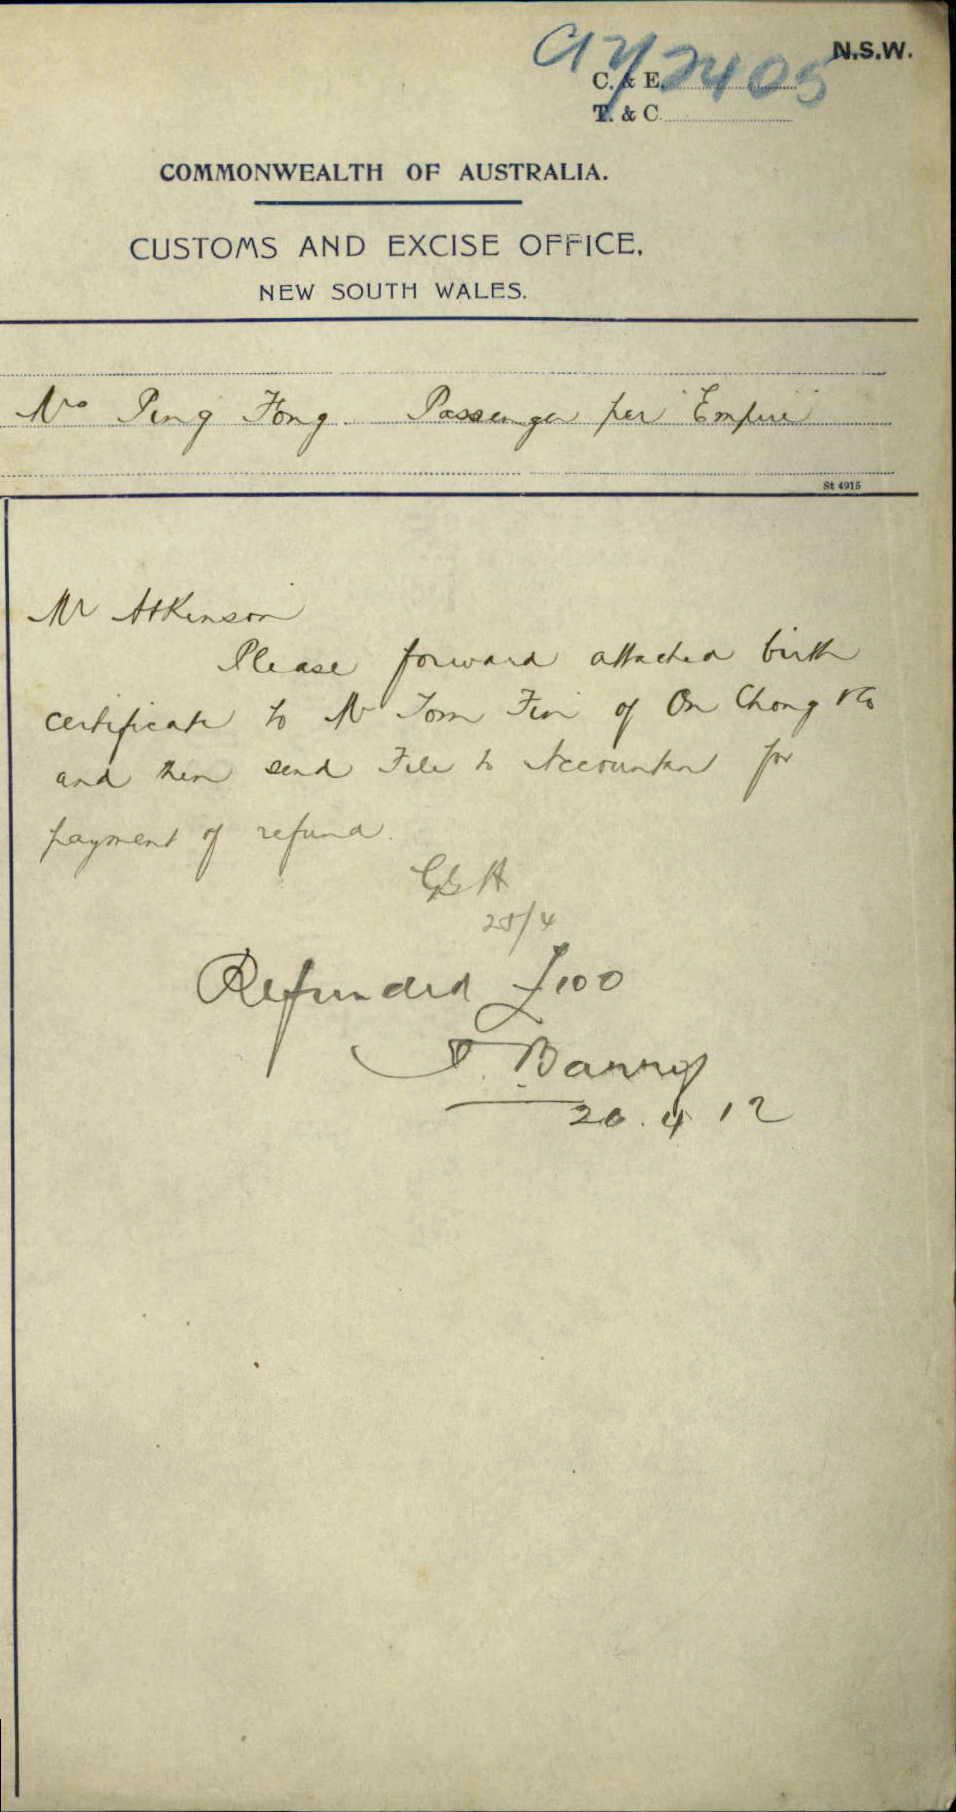 N.S.W.
C. & E. 2405
T. & C.
COMMONWEALTH OF AUSTRALIA.
CUSTOMS AND EXCISE OFFICE,
NEW SOUTH WALES.
Mrs Ping Fong. Passenger per "Empire"
St 4915
Mr Atkinson
Please forward attached birth
certificate to Mr Tom Fin of On Chong & Co
and then send File to Accountant for
payment of refund.
/4
Refunded £100
Barry
26.4.12